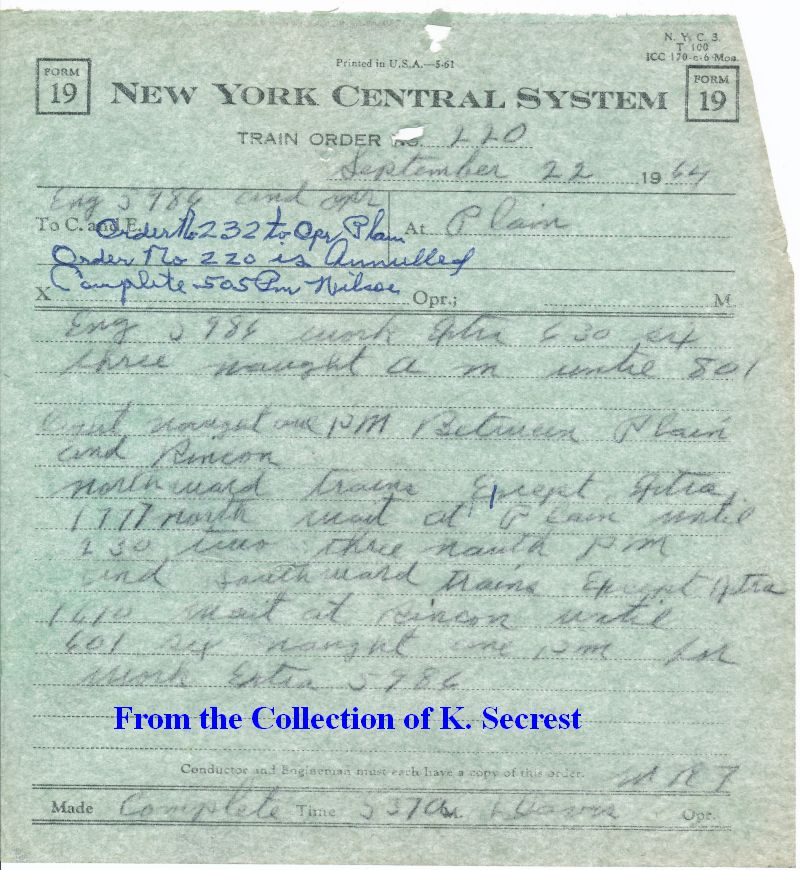 N. Y. C. S.
T 100
ICC 170-c-6 Mos.
Printed in U.S.A.—5-61
FORM 19
NEW YORK CENTRAL SYSTEM
FORM 19
TRAIN ORDER NO. 220
September 22 1964
Eng 5986 and opr
To C. and E. At Plain
Order No 232 to Opr Plain
Order No 220 is Annulled
Complete 505 Pm
X Opr.; M
Eng 5986 work Extra 630 six
three naught a m until 801
naught one PM Between Plain
and Rincon
northward trains Except Extra
1717 north wait at Plain until
230 two three PM
and southward trains Except Extra
wait at Rincon until
601 six naught one pm for
work Extra 5986
From the Collection of K. Secrest
Conductor and Engineman must each have a copy of this order.
Made Complete Time 537 a M. Davis Opr.